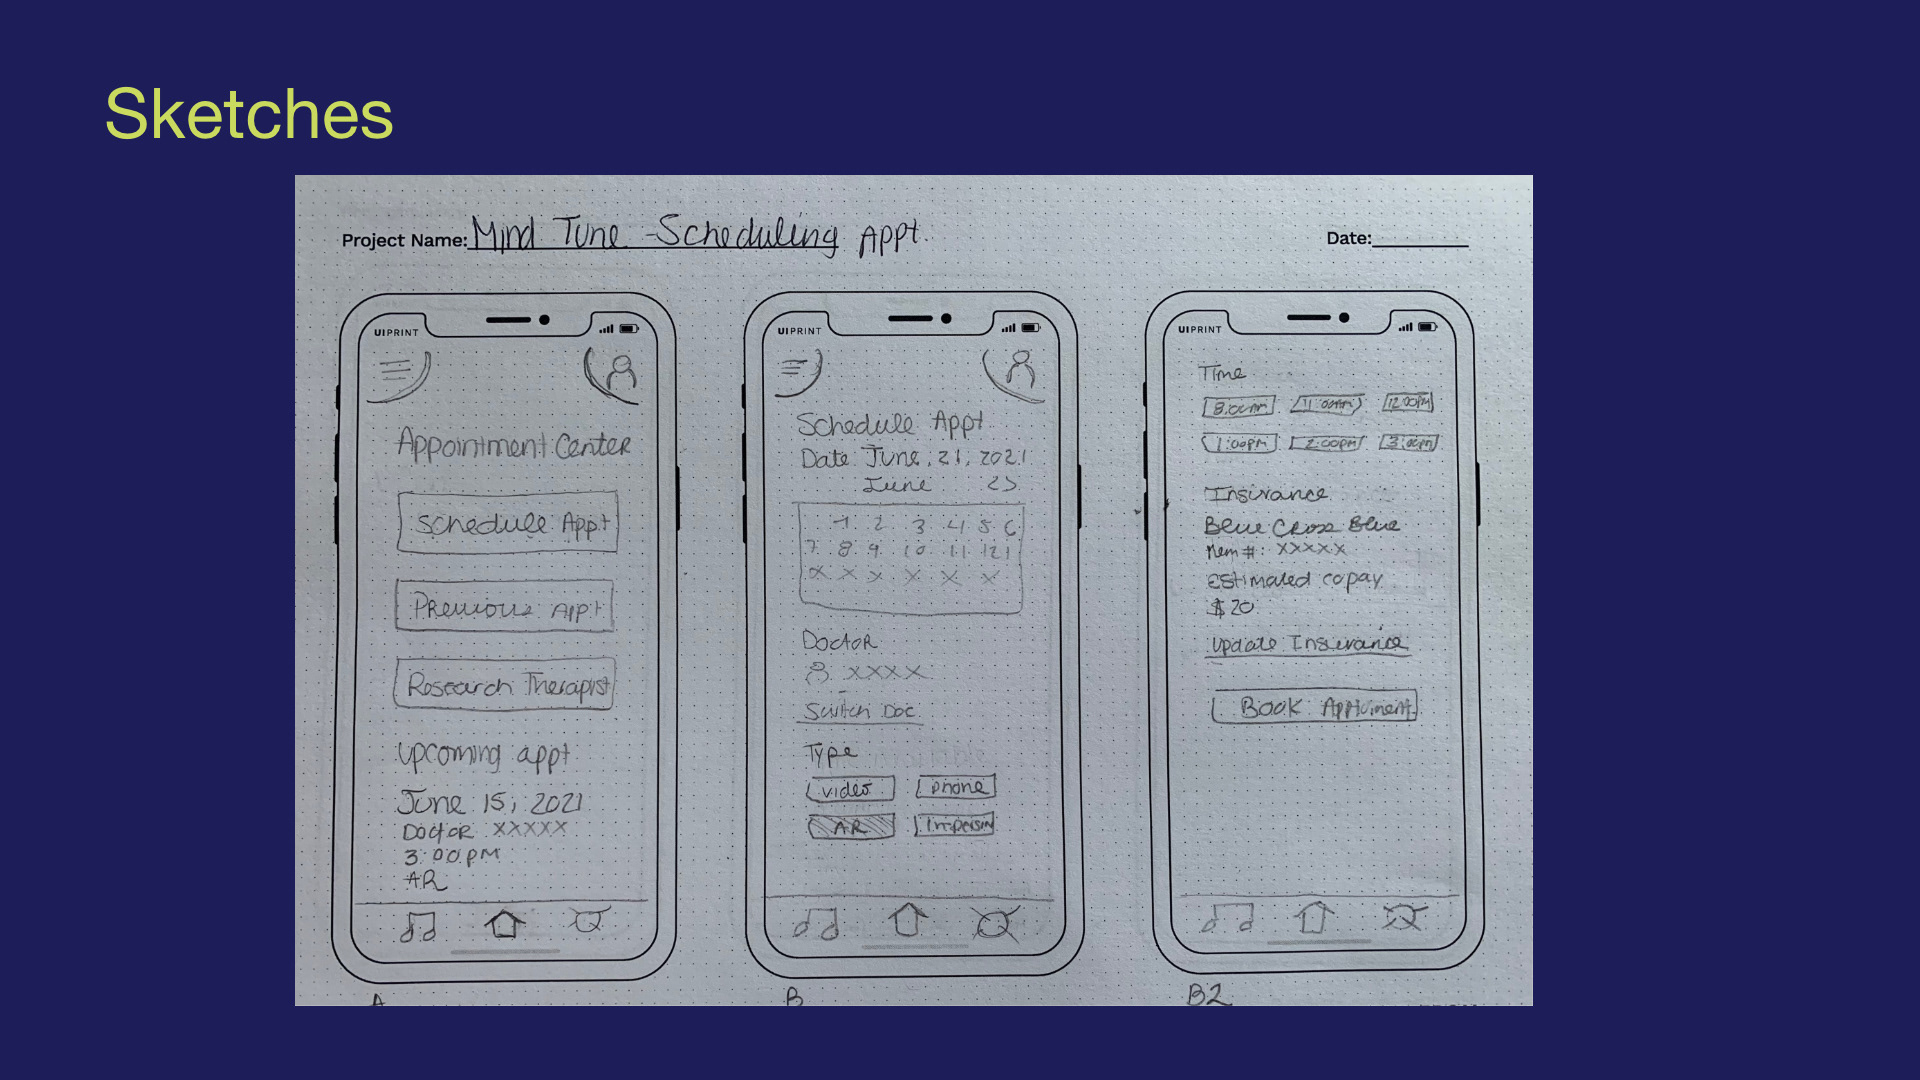 Sketches
Project Name: Mind Tune - Scheduling Appt.
Date:
UIPRINT
Appointment Center
Schedule Appt
Previous Appt
Research Therapist
Upcoming appt
June 15, 2021
Doctor XXXXX
3:00 PM
AR
A
UIPRINT
Schedule Appt
Date June, 21, 2021
June
1 2 3 4 5 6
7 8 9 10 11 12
X X X X X X
Doctor
XXXX
Switch Doc
Type
video phone
AR In-person
B
UIPRINT
Time
8:00am 11:00am 12:00pm
1:00pm 2:00pm 3:00pm
Insurance
Blue Cross Blue
Mem #: XXXXX
Estimated copay
$20
Update Insurance
B2